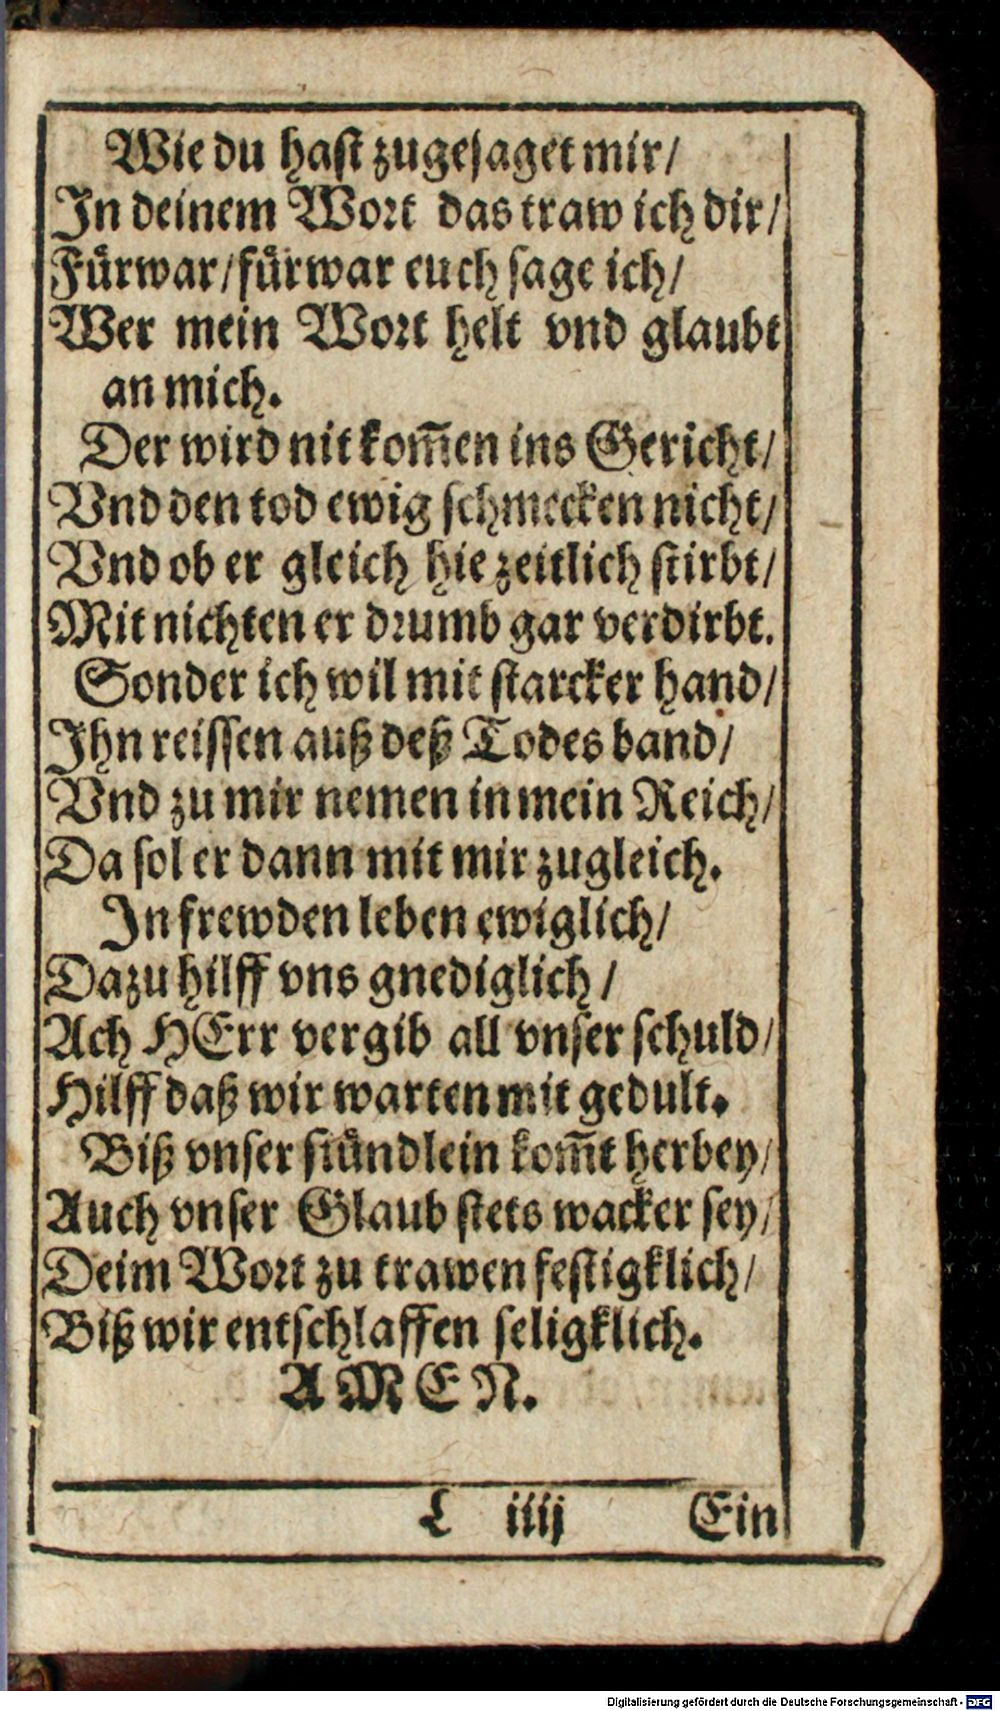 Wie du hast zugesaget mir/
In deinem Wort das traw ich dir/
Fürwar/fürwar euch sage ich/
Wer mein Wort helt vnd glaubt
an mich.
Der wird nit kom̃en ins Gericht/
Vnd den tod ewig schmecken nicht/
Vnd ob er gleich hie zeitlich stirbt/
Mit nichten er drumb gar verdirbt.
Sonder ich wil mit starcker hand/
Ihn reissen auß deß Todes band/
Vnd zu mir nemen in mein Reich/
Da sol er dann mit mir zugleich.
In frewden leben ewiglich/
Dazu hilff vns gnediglich/
Ach HErr vergib all vnser schuld/
Hilff daß wir warten mit gedult.
Biß vnser stündlein kom̃t herbey/
Auch vnser Glaub stets wacker sey/
Deim Wort zu trawen festigklich/
Biß wir entschlaffen seligklich.
AMEN.
L iiij Ein
Digitalisierung gefördert durch die Deutsche Forschungsgemeinschaft - DFG